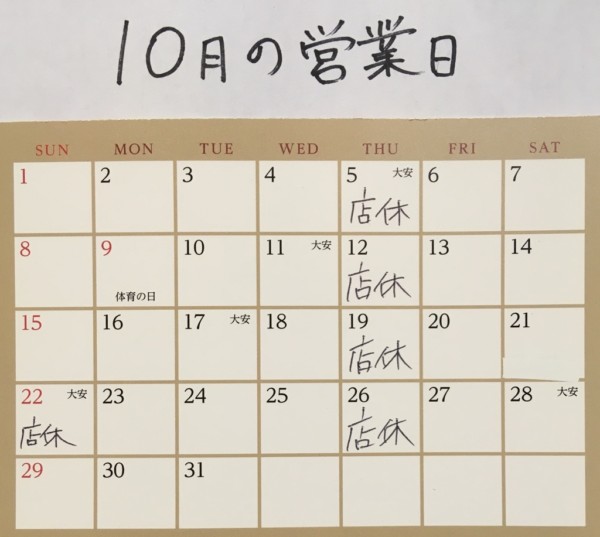 10月の営業日
SUN MON TUE WED THU FRI SAT
1 2 3 4 5 大安 6 7
店休
8 9 10 11 大安 12 13 14
体育の日 店休
15 16 17 大安 18 19 20 21
店休
22 大安 23 24 25 26 27 28 大安
店休 店休
29 30 31